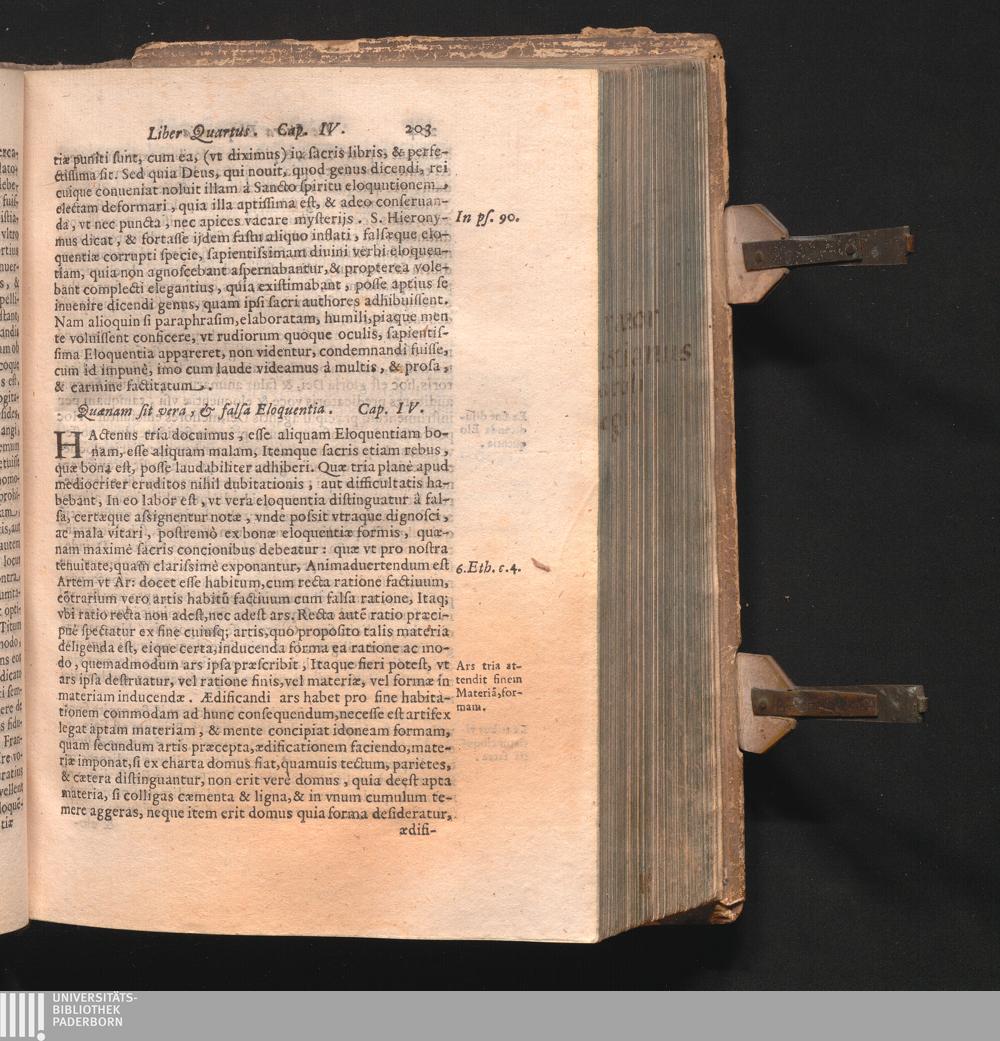 Liber Quartus. Cap. IV. 203
tiæ puniti sunt, cum ea, (vt diximus) in sacris libris, & perfe-
ctissima sit. Sed quia Deus, qui nouit, quod genus dicendi, rei
cuique conueniat noluit illam à Sancto spiritu eloquutionem
electam deformari, quia illa aptissima est, & adeo conseruan-
da, vt nec puncta, nec apices vacare mysterijs. S. Hierony-
In ps. 90.
mus dicat, & fortasse ijdem fastu aliquo inflati, falsæque elo-
quentiæ corrupti specie, sapientissimam diuini verbi eloquen-
tiam, quia non agnoscebant aspernabantur, & propterea vole-
bant complecti elegantius, quia existimabant, posse aptius se
inuenire dicendi genus, quam ipsi sacri authores adhibuissent.
Nam alioquin si paraphrasim, elaboratam, humili, piaque men
te voluissent conficere, vt rudiorum quoque oculis, sapientis-
sima Eloquentia appareret, non videntur, condemnandi fuisse,
cum id impunè, imo cum laude videamus à multis, & prosa,
& carmine factitatum.
Quænam sit vera, & falsa Eloquentia. Cap. IV.
HActenus tria docuimus, esse aliquam Eloquentiam bo-
nam, esse aliquam malam, Itemque sacris etiam rebus,
quæ bona est, posse laudabiliter adhiberi. Quæ tria planè apud
mediocriter eruditos nihil dubitationis, aut difficultatis ha-
bebant, In eo labor est, vt vera eloquentia distinguatur à fal-
sa, certæque assignentur notæ, vnde possit vtraque dignosci,
ac mala vitari, postremò ex bonæ eloquentiæ formis, quæ-
nam maximè sacris concionibus debeatur: quæ vt pro nostra
tenuitate, quam clarissimè exponantur, Animaduertendum est
6. Eth. c. 4.
Artem vt Ar: docet esse habitum, cum recta ratione factiuum,
cōtrarium vero artis habitū factiuum cum falsa ratione, Itaq;
vbi ratio recta non adest, nec adest ars. Recta autē ratio præci-
puè spectatur ex fine cuiusq; artis, quo proposito talis materia
deligenda est, eique certa, inducenda forma ea ratione ac mo-
do, quemadmodum ars ipsa præscribit, Itaque fieri potest, vt
ars ipsa destruatur, vel ratione finis, vel materiæ, vel formæ in
materiam inducendæ. Ædificandi ars habet pro fine habita-
Ars tria at-
tendit finem
Materiā, for-
mam.
tionem commodam ad hunc consequendum, necesse est artifex
legat aptam materiam, & mente concipiat idoneam formam,
quam secundum artis præcepta, ædificationem faciendo, mate-
riæ imponat, si ex charta domus fiat, quamuis tectum, parietes,
& cætera distinguantur, non erit verè domus, quia deest apta
materia, si colligas cæmenta & ligna, & in vnum cumulum te-
mere aggeras, neque item erit domus quia forma desideratur,
ædifi-
UNIVERSITÄTS-
BIBLIOTHEK
PADERBORN